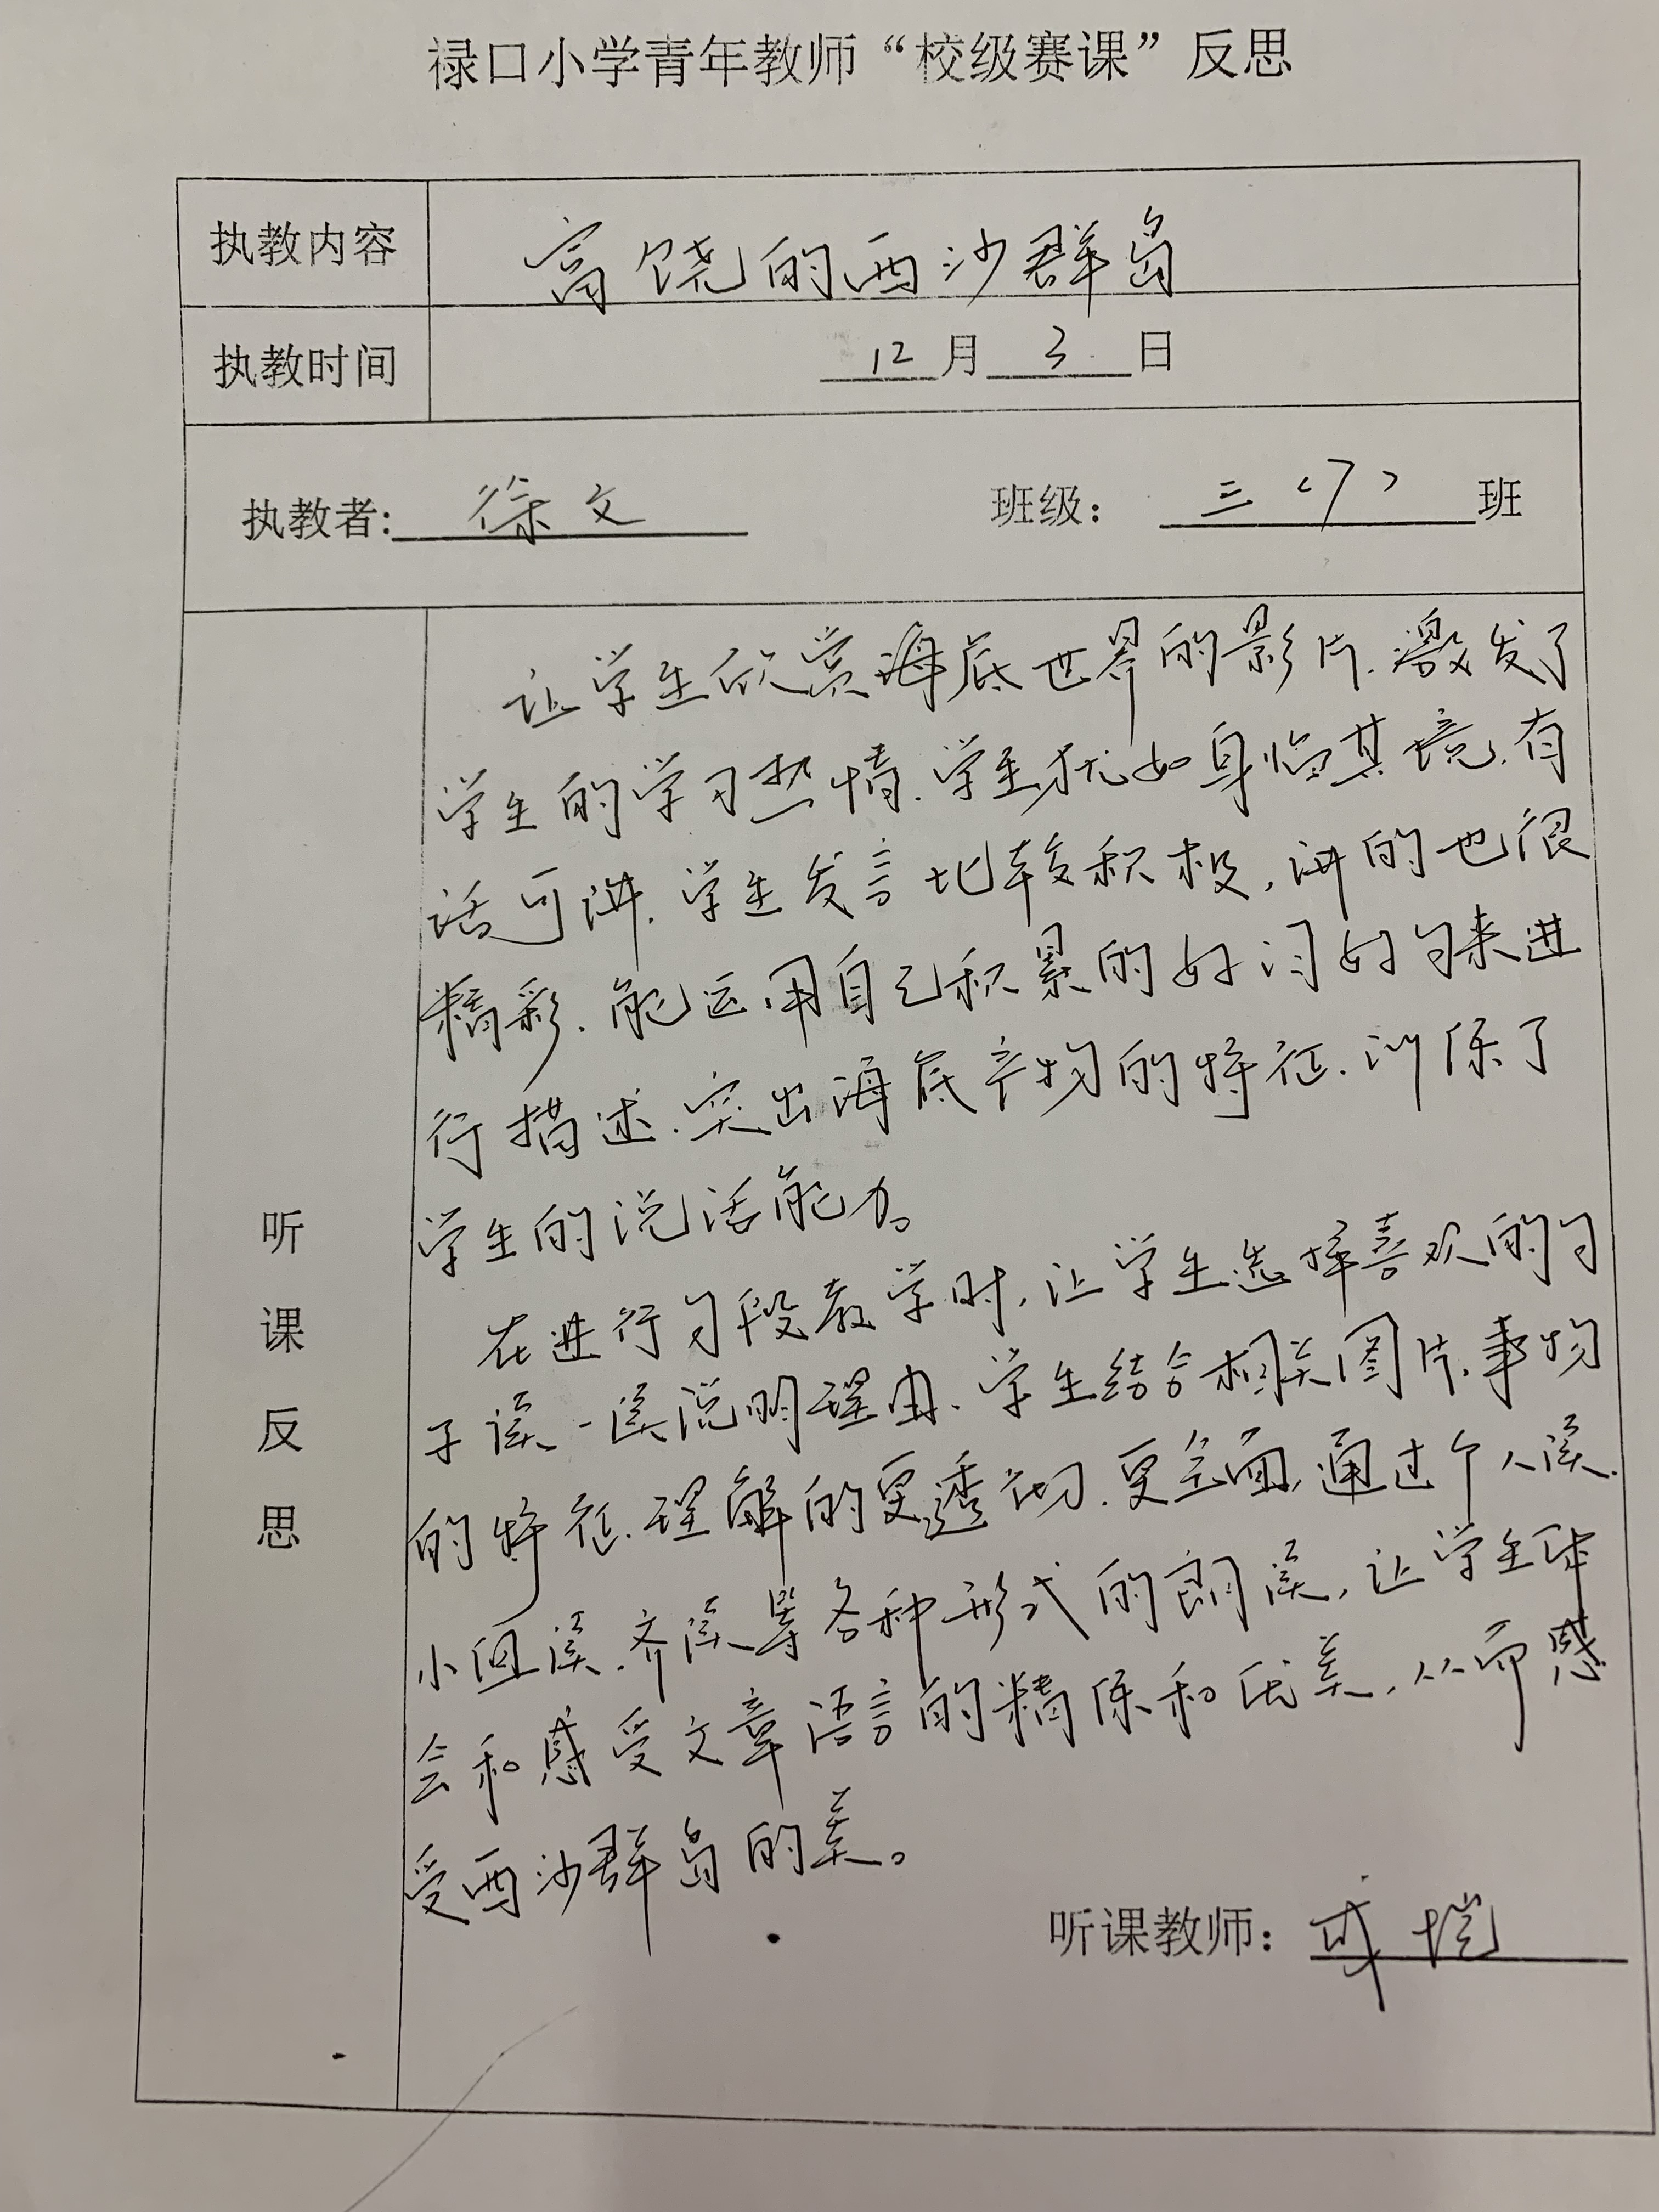 禄口小学青年教师“校级赛课”反思
执教内容 富饶的西沙群岛
执教时间 12月3日
执教者:徐文 班级：三（7）班
听课反思
让学生欣赏海底世界的影片，激发了
学生的学习热情，学生犹如身临其境，有
话可讲，学生发言比较积极，讲的也很
精彩，能运用自己积累的好词好句来进
行描述，突出海底产物的特征，训练了
学生的说话能力。
在进行句段教学时，让学生选择喜欢的句
子读一读说明理由，学生结合相关图片，事物
的特征，理解的更透彻，更全面，通过个人读，
小组读，齐读等各种形式的朗读，让学生体
会和感受文章语言的精练和优美，从而感
受西沙群岛的美。
听课教师：